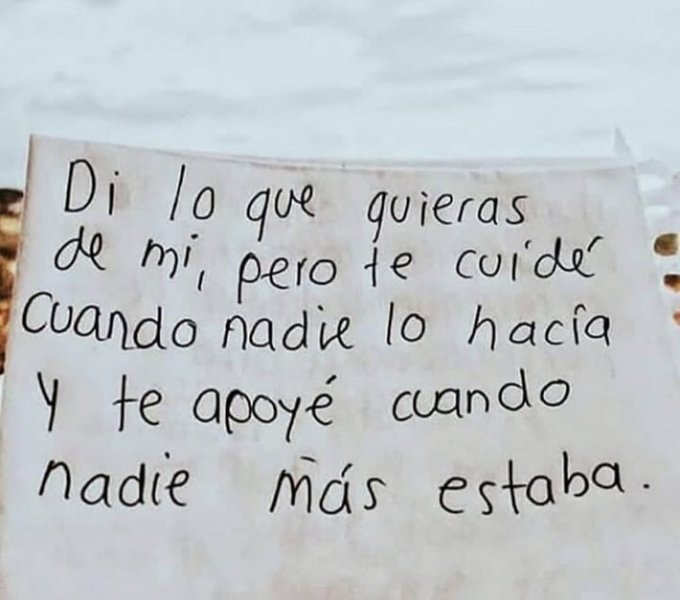 Di lo que quieras
de mi, pero te cuidé
cuando nadie lo hacía
y te apoyé cuando
nadie más estaba.